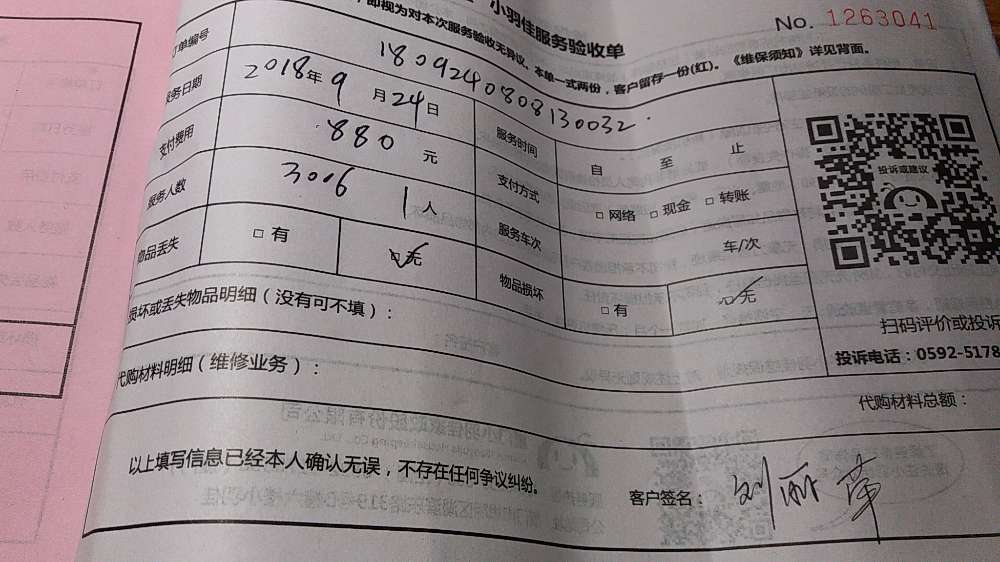 小羽佳服务验收单
No. 1263041
即视为对本次服务验收无异议。本单一式两份，客户留存一份(红)。《维保须知》详见背面。
订单编号 1809240808130032
服务日期 2018年9月24日 服务时间 自 至 止
支付费用 880元 支付方式 □网络 □现金 □转账
服务人数 3006 1人 服务车次 车/次
物品丢失 □有 □无 物品损坏 □有 □无
投诉或建议
扫码评价或投诉
投诉电话：0592-5178
损坏或丢失物品明细（没有可不填）：
代购材料明细（维修业务）：
代购材料总额：
以上填写信息已经本人确认无误，不存在任何争议纠纷。
客户签名：刘丽华